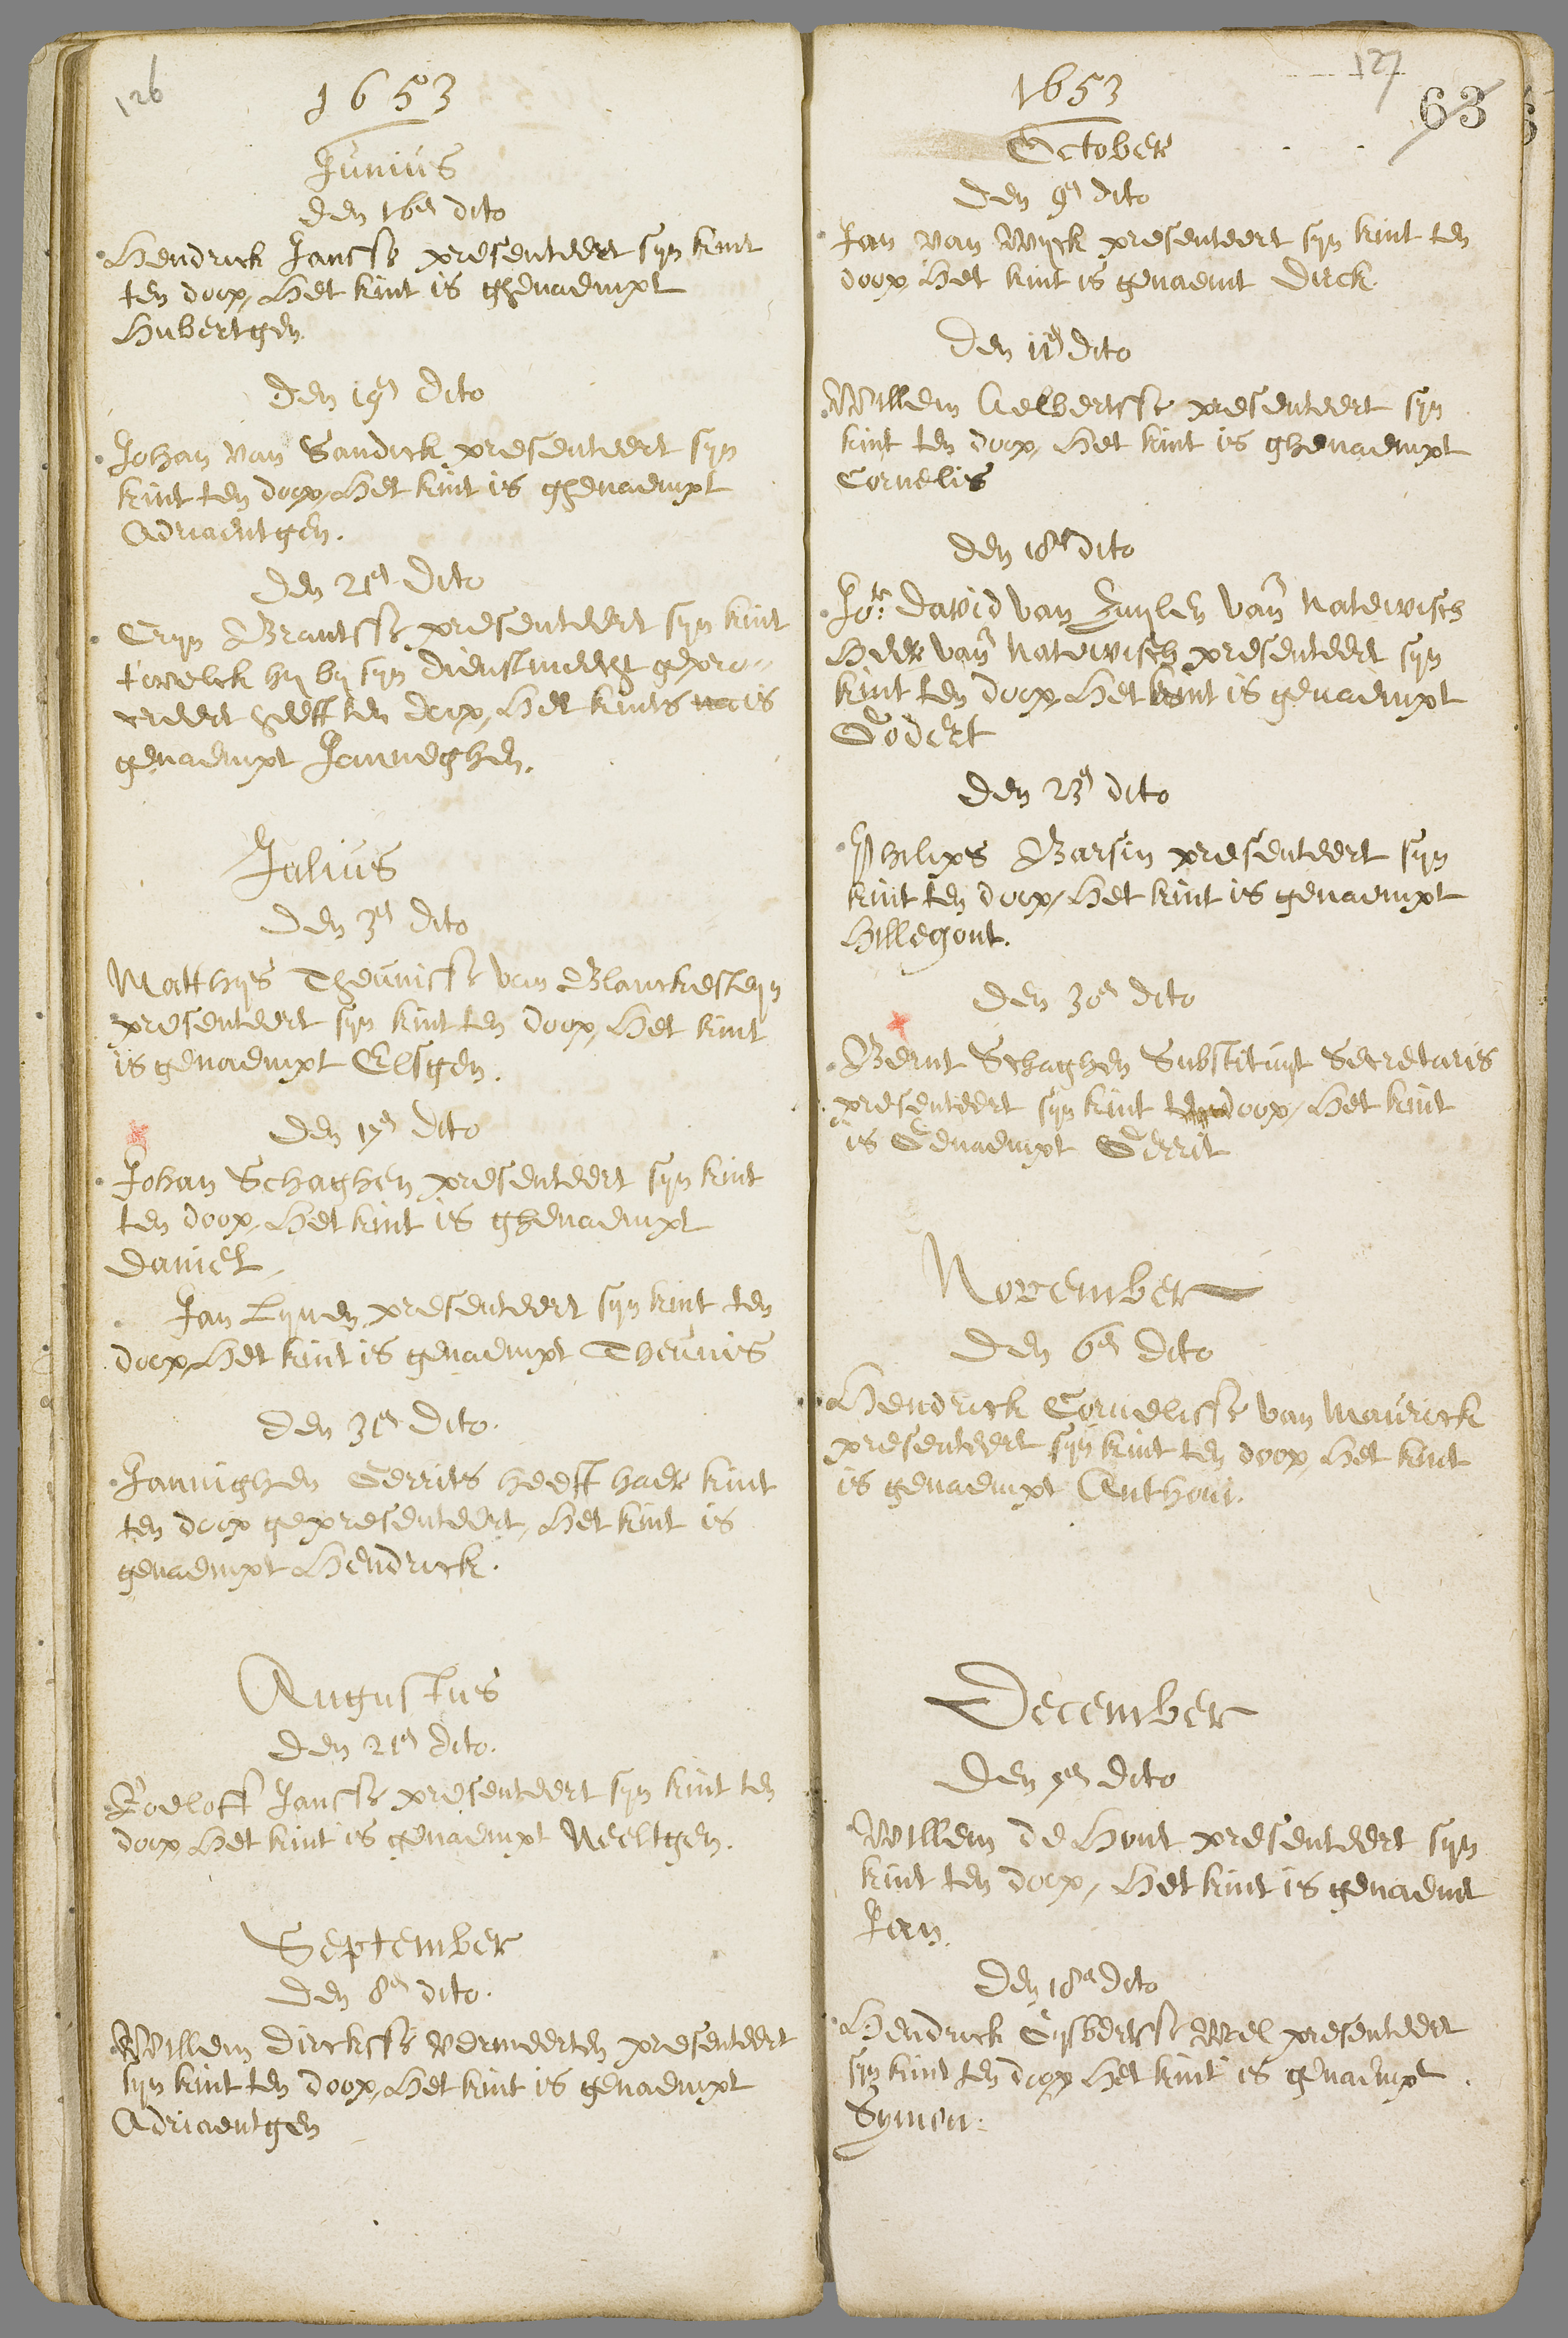 126
1653
Junius
den 16en dito
Hendrick Jansse presenteert syn kint
ten doop, Het kint is ghenaempt
Hubertgen.
den 19en dito
Johan van Sandick presenteert syn
kint ten doop, Het kint is ghenaempt
Adriaentgen.
den 21en dito
Cryn Brantsse presenteert syn kint
twelck hy by syn dienstmeecht gepro-
creert heeft ten doop, Het kints na is
genaempt Janneghen.
Julius
den 3en dito
Matthys Theunisse van Blanckesteyn
presenteert syn kint ten doop, Het kint
is genaempt Elsgen.
den 17en dito
Johan Schaghen presenteert syn kint
ten doop, Het kint is ghenaempt
Daniel,
Jan Lynen presenteert syn kint ten
doop, Het kint is genaempt Theunis
den 31en dito.
Jannighen Gerrits heeft haer kint
ten doop gepresenteert, Het kint is
genaempt Hendrick.
Augustus
den 21en dito.
Roeloff Jansse presenteert syn kint ten
doop Het kint is genaempt Neeltgen.
September
den 8en dito.
Willem Dircksse Vermeerten presenteert
syn kint ten doop, Het kint is genaempt
Adriaentgen
127
63
1653
October
den 9en dito
Jan van Wyck presenteert syn kint ten
doop, Het kint is genaemt Dirck.
den 11en dito
Willem Aelbertsse presenteert syn
kint ten doop, Het kint is ghenaempt
Cornelis
den 18en dito
Jor. David van Zuylen van Natewisch
Heer van Natewisch presenteert syn
kint ten doop, Het kint is genaempt
Godert
den 23en dito
Philips Barsin presenteert syn
kint ten doop, Het kint is genaempt
Hillegont.
den 30en dito
Bernt Schaghen Substituyt Secretaris
presenteert syn kint ten doop, Het kint
is Genaempt Gerrit
November
den 6en dito
Hendrick Cornelisse van Maurick
presenteert syn kint ten doop, Het kint
is genaempt Anthoni.
December
den 7en dito
Willem de Hont presenteert syn
kint ten doop, Het kint is genaemt
Jan.
den 18en dito
Hendrick Gysbertsse Wel presenteert
syn kint ten doop Het kint is genaempt.
Symon.